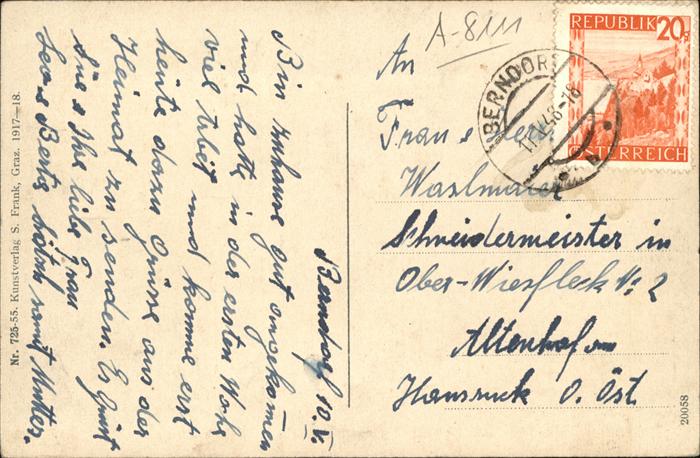 Berndorf 10.V.
Bin zuhause gut angekommen
und hatte in der ersten Woche
viel Arbeit und komme erst
heute dazu Grüsse aus der
Heimat zu senden. Es grüsst
Sie u Ihre liebe Frau
samt Mutter.
Nr. 725-55. Kunstverlag S. Frank, Graz. 1917—18.
A-8111
REPUBLIK 20g
ÖSTERREICH
BERNDORF
11.V.48-18
An
Frau u Herrn
Schneidermeister in
Ober-Wiesfleck № 2
Altenhof am
Hausruck O. Öst
20058